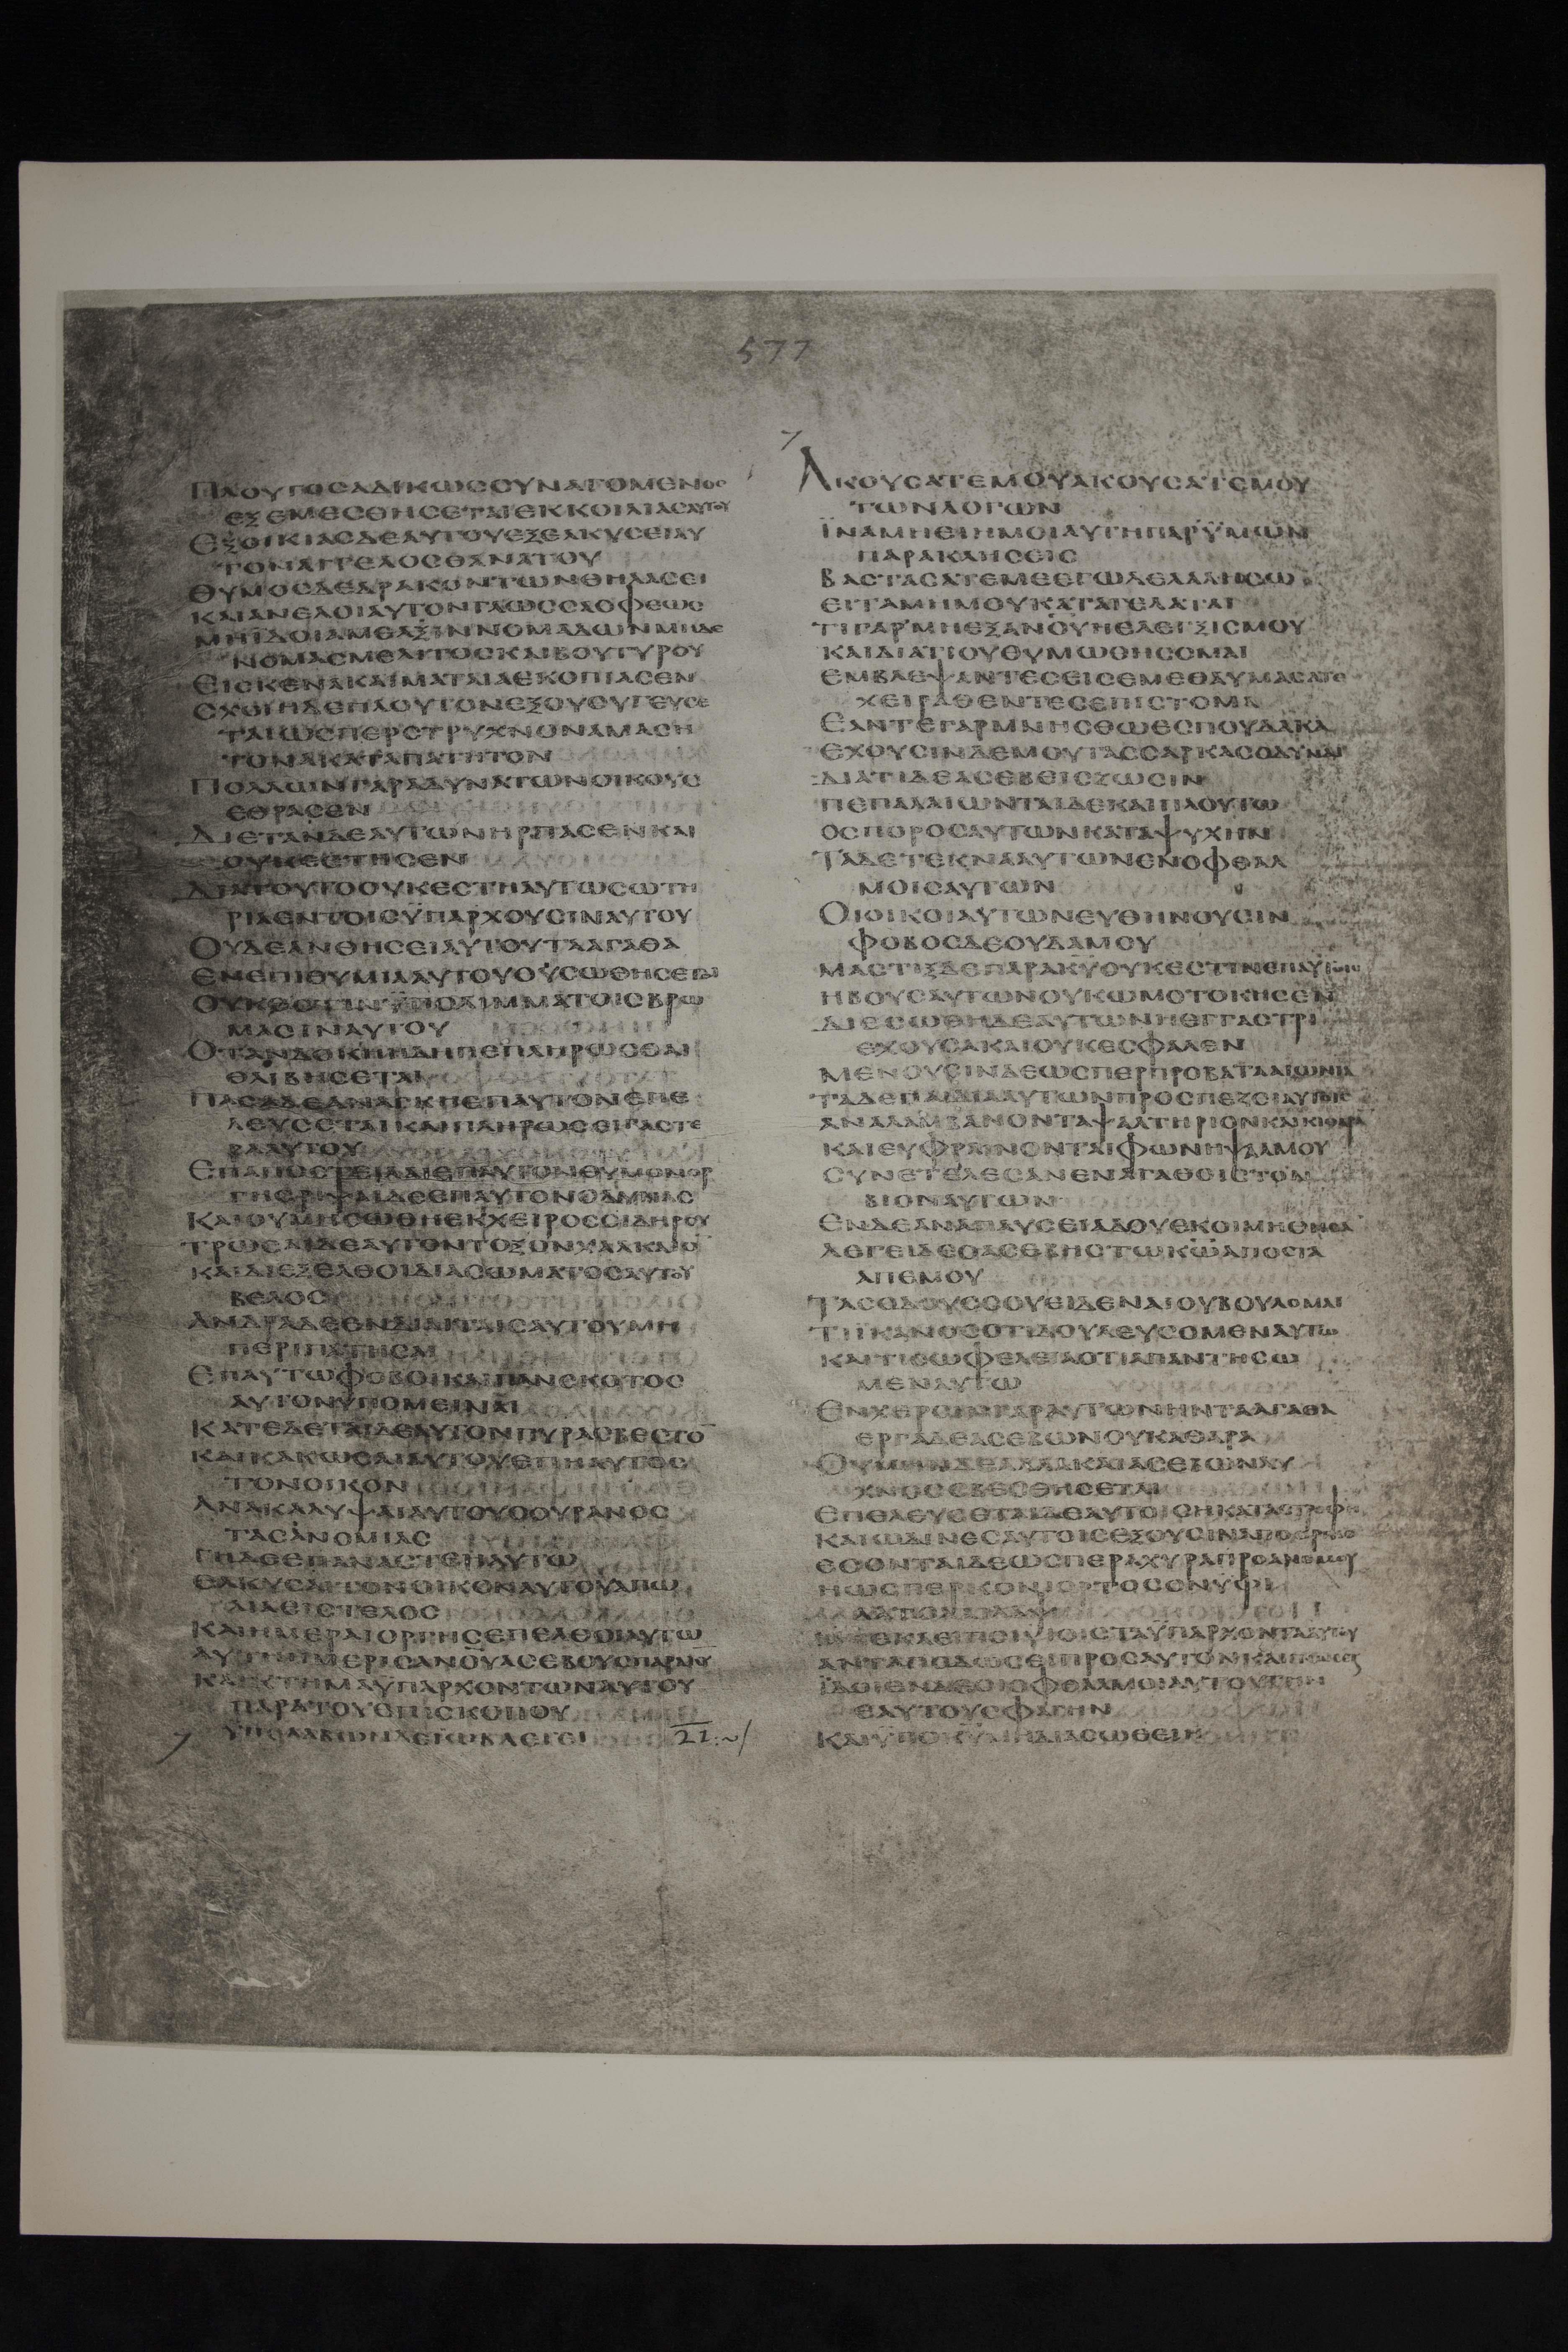 577
ΠΛΟΥΤΟCΑΔΙΚΩCCΥΝΑΓΟΜΕΝΟC
ΕΞΕΜΕCΘΗCΕΤΑΙΕΚΚΟΙΛΙΑCΑΥΤΟΥ
ΕΞΟΙΚΙΑCΔΕΑΥΤΟΥΕΞΕΛΚΥCΕΙΑΥ
ΤΟΝΑΓΓΕΛΟCΘΑΝΑΤΟΥ
ΘΥΜΟCΔΕΔΡΑΚΟΝΤΩΝΘΗΛΑCΕΙ
ΚΑΙΑΝΕΛΟΙΑΥΤΟΝΓΛΩCCΑΟΦΕΩC
ΜΗΙΔΟΙΑΜΕΛΞΙΝΝΟΜΑΔΩΝΜΗΔΕ
ΝΟΜΑCΜΕΛΙΤΟCΚΑΙΒΟΥΤΥΡΟΥ
ΕΙCΚΕΝΑΚΑΙΜΑΤΑΙΑΕΚΟΠΙΑCΕΝ
ΤΑΙΩCΠΕΡCΤΡΥΧΝΟΝΑΜΑCΗ
ΤΟΝΑΚΑΤΑΠΑΤΗΤΟΝ
ΠΟΛΛΩΝΓΑΡΑΔΥΝΑΤΩΝΟΙΚΟΥC
ΕΘΡΑCΕΝ
ΔΙΕΤΑΝΔΕΑΥΤΩΝΗΡΠΑCΕΝΚΑΙ
ΟΥΚΕCΤΗCΕΝ
ΔΙΑΤΟΥΤΟΟΥΚΕCΤΗΑΥΤΩCΩΤΗ
ΡΙΑΕΝΤΟΙCΫΠΑΡΧΟΥCΙΝΑΥΤΟΥ
ΟΥΔΕΑΝΘΗCΕΙΑΥΤΟΥΤΑΑΓΑΘΑ
ΕΝΕΠΙΘΥΜΙΑΑΥΤΟΥΟΥCΩΘΗCΕΤΑΙ
ΟΥΚΕCΤΙΝΫΠΟΛΙΜΜΑΤΟΙCΒΡΩ
ΜΑCΙΝΑΥΤΟΥ
ΟΤΑΝΔΟΚΗΗΔΗΠΕΠΛΗΡΩCΘΑΙ
ΘΛΙΒΗCΕΤΑΙ
ΠΑCΑΔΕΑΝΑΓΚΗΕΠΑΥΤΟΝΕΠΕ
ΛΕΥCΕΤΑΙ
ΡΑΑΥΤΟΥ
ΚΑΙΟΥΜΗCΩΘΗΕΚΧΕΙΡΟCCΙΔΗΡΟΥ
ΤΡΩCΑΙΔΕΑΥΤΟΝΤΟΞΟΝΧΑΛΚΑΙΟ
ΚΑΙΔΙΕΞΕΛΘΟΙΔΙΑCΩΜΑΤΟCΑΥΤΟΥ
ΒΕΛΟC
ΑΝΔΡΑΔΕΕΝΔΙΑΙΤΑΙCΑΥΤΟΥΜΗ
ΠΕΡΙΠΑΤΗCΑΙ
ΕΠΑΥΤΩΦΟΒΟΙΚΑΙΠΑΝCΚΟΤΟC
ΑΥΤΟΝΥΠΟΜΕΙΝΑΙ
ΚΑΤΕΔΕΤΑΙΔΕΑΥΤΟΝΠΥΡΑCΒΕCΤΟ
ΤΟΝΟΙΚΟΝ
ΑΝΑΚΑΛΥΨΑΙΑΥΤΟΥΟΟΥΡΑΝΟC
ΤΑCΑΝΟΜΙΑC
ΓΗΔΕΕΠΑΝΑCΤΕΙΗΑΥΤΩ
ΕΛΚΥCΑΙΤΟΝΟΙΚΟΝΑΥΤΟΥΑΠΩ
ΛΙΑΕΙCΤΕΛΟC
ΚΑΙΗΜΕΡΑΙΟΡΓΗCΕΠΕΛΘΟΙΑΥΤΩ
ΑΥΤΗΗΜΕΡΙCΑΝΟΥΑCΕΒΟΥCΠΑΡΑΚΥ
ΚΑΙΚΤΗΜΑΫΠΑΡΧΟΝΤΩΝΑΥΤΟΥ
ΠΑΡΑΤΟΥΕΠΙCΚΟΠΟΥ
ΫΠΟΛΑΒΩΝΔΕΙΩΒΛΕΓΕΙ
21
ΑΚΟΥCΑΤΕΜΟΥΑΚΟΥCΑΤΕΜΟΥ
ΤΩΝΛΟΓΩΝ
ΪΝΑΜΗΕΙΗΜΟΙΑΥΤΗΠΑΡΫΜΩΝ
ΠΑΡΑΚΛΗCΕΙC
ΒΑCΤΑCΑΤΕΜΕΕΓΩΔΕΛΑΛΗCΩ
ΕΙΤΑΜΗΜΟΥΚΑΤΑΓΕΛΑΤΑΙ
ΤΙΓΑΡΜΗΕΞΑΝΟΥΗΕΛΕΓΞΙCΜΟΥ
ΚΑΙΔΙΑΤΙΟΥΘΥΜΩΘΗCΟΜΑΙ
ΕΜΒΛΕΨΑΝΤΕCΕΙCΕΜΕΘΑΥΜΑCΑΤΕ
ΧΕΙΡΑΘΕΝΤΕCΕΠΙCΤΟΜΑ
ΕΑΝΤΕΓΑΡΜΝΗCΘΩΕCΠΟΥΔΑΚΑ
ΕΧΟΥCΙΝΔΕΜΟΥΤΑCCΑΡΚΑCΟΔΥΝΑΙ
ΔΙΑΤΙΔΕΑCΕΒΕΙCΖΩCΙΝ
ΠΕΠΑΛΑΙΩΝΤΑΙΔΕΚΑΙΠΛΟΥΤΩ
ΟCΠΟΡΟCΑΥΤΩΝΚΑΤΑΨΥΧΗΝ
ΤΑΔΕΤΕΚΝΑΑΥΤΩΝΕΝΟΦΘΑΛ
ΜΟΙCΑΥΤΩΝ
ΟΙΟΙΚΟΙΑΥΤΩΝΕΥΘΗΝΟΥCΙΝ
ΦΟΒΟCΔΕΟΥΔΑΜΟΥ
ΜΑCΤΙΞΔΕΠΑΡΑΚΥΟΥΚΕCΤΙΝΕΠΑΥΤΟΙC
ΗΒΟΥCΑΥΤΩΝΟΥΚΩΜΟΤΟΚΗCΕΝ
ΔΙΕCΩΘΗΔΕΑΥΤΩΝΗΕΓΓΑCΤΡΙ
ΕΧΟΥCΑΚΑΙΟΥΚΕCΦΑΛΕΝ
ΜΕΝΟΥCΙΝΔΕΩCΠΕΡΠΡΟΒΑΤΑΑΙΩΝΙΑ
ΤΑΔΕΠΑΙΔΙΑΑΥΤΩΝΠΡΟCΠΕΖΕΙΑΥΤΟΙC
ΑΝΑΛΑΜΒΑΝΟΝΤΑΨΑΛΤΗΡΙΟΝΚΑΙΚΙΘΑΡΑ
ΚΑΙΕΥΦΡΑΙΝΟΝΤΑΙΦΩΝΗΨΑΛΜΟΥ
CΥΝΕΤΕΛΕCΑΝΕΝΑΓΑΘΟΙCΤΟΝ
ΒΙΟΝΑΥΤΩΝ
ΕΝΔΕΑΝΑΠΑΥCΕΙΑΔΟΥΕΚΟΙΜΗΘΗCΑ
ΛΕΓΕΙΔΕΟΑCΕΒΗCΤΩΚΩΑΠΟCΤΑ
ΑΠΕΜΟΥ
ΤΑCΟΔΟΥCCΟΥΕΙΔΕΝΑΙΟΥΒΟΥΛΟΜΑΙ
ΤΙΪΚΑΝΟCΟΤΙΔΟΥΛΕΥCΟΜΕΝΑΥΤΩ
ΚΑΙΤΙCΩΦΕΛΕΙΑΟΤΙΑΠΑΝΤΗCΩ
ΜΕΝΑΥΤΩ
ΕΝΧΕΡCΙΝΓΑΡΑΥΤΩΝΗΝΤΑΑΓΑΘΑ
ΕΡΓΑΔΕΑCΕΒΩΝΟΥΚΑΘΑΡΑ
ΟΥΜΗΝΔΕΑΛΛΑΚΑΙΑCΕΒΩΝΛΥ
ΧΝΟCCΒΕCΘΗCΕΤΑΙ
ΕΠΕΛΕΥCΕΤΑΙΔΕΑΥΤΟΙCΗΚΑΤΑCΤΡΟΦΗ
ΚΑΙΩΔΙΝΕCΑΥΤΟΙCΕΞΟΥCΙΝΑΠΟΟΡΓΗC
ΕCΟΝΤΑΙΔΕΩCΠΕΡΑΧΥΡΑΠΡΟΑΝΕΜΟΥ
ΗΩCΠΕΡΚΟΝΙΟΡΤΟC
ΑΝΤΑΠΟΔΩCΕΙΠΡΟCΑΥΤΟΝΚΑΙΓΝΩCΕΤΑΙ
ΪΔΟΙΕΝΔΕΟΙΟΦΘΑΛΜΟΙΑΥΤΟΥΤΗΝ
ΕΑΥΤΟΥCΦΑΓΗΝ
ΚΑΙΫΠΟΚΥΜΗΔΙΑCΩΘΕΙΗ